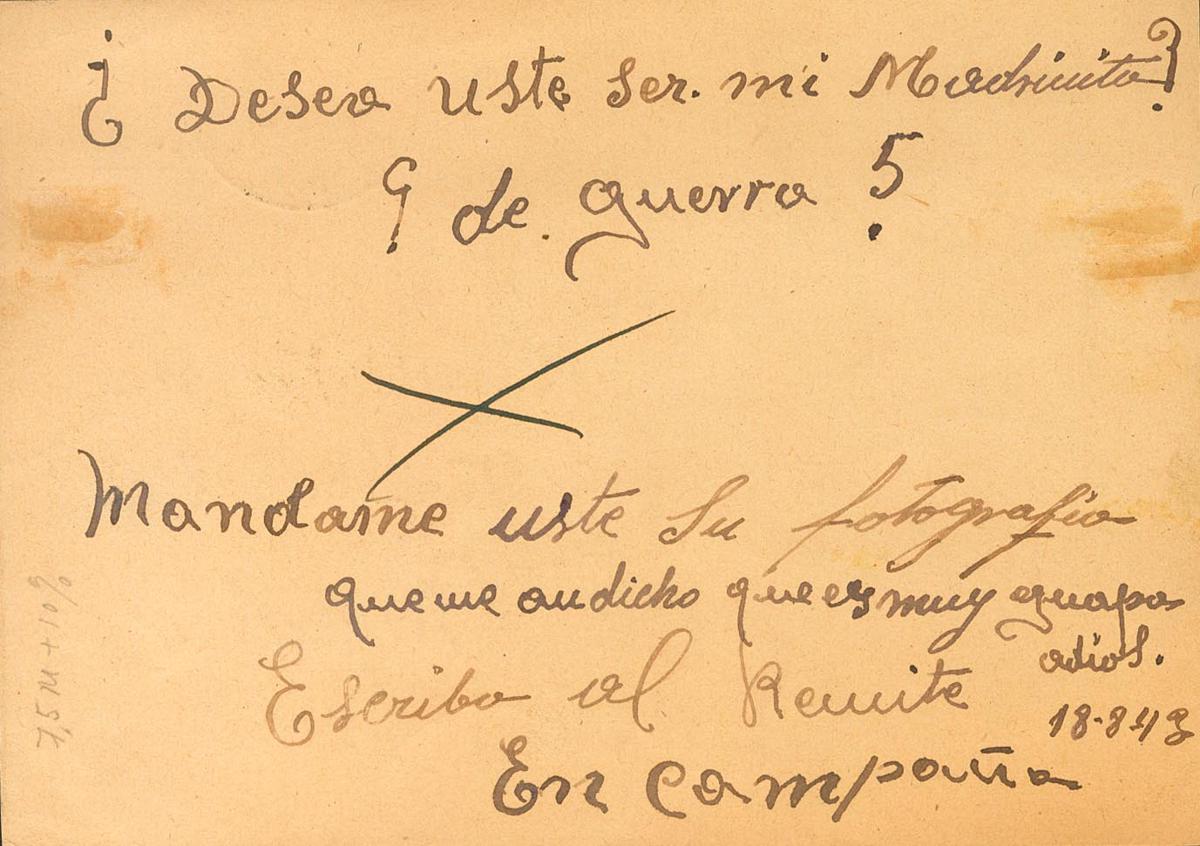 ¿ Desea uste ser. mi Madrinita ?
¿ de. guerra ?
Mandame uste su fotografia
que me an dicho que es muy guapa
adios.
Escriba al Remite
18-8-43
En campaña
7,5 M + 10%